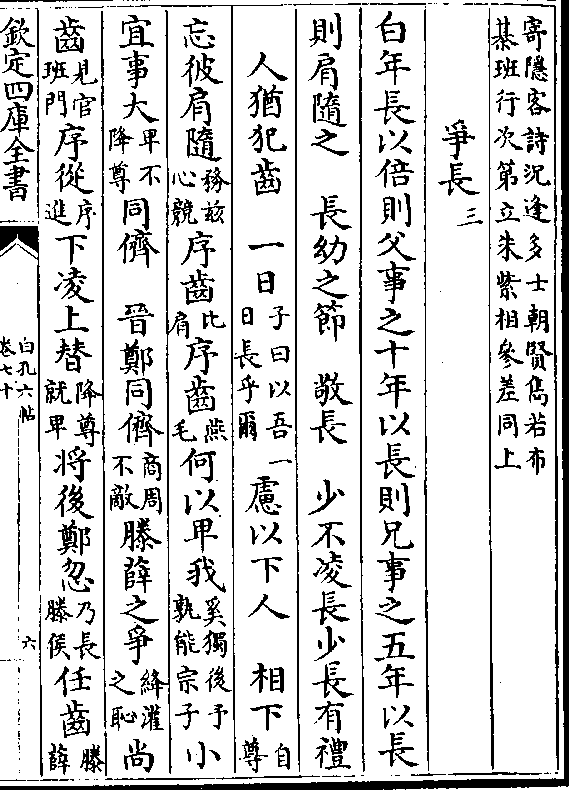 寄隱客詩沉逢多士朝賢儁若布
棊班行次第立朱紫相參差同上
爭長三
白年長以倍則父事之十年以長則兄事之五年以長
則肩隨之　長幼之節　敬長　少不凌長少長有禮
人猶犯齒　一日子曰以吾一日長乎爾　慮以下人　相下自尊
忘彼肩隨務兹心競序齒比肩序齒燕毛何以卑我奚獨後予孰能宗子小
宜事大卑不降尊同儕　晉鄭同儕商周不敵滕薛之爭絳灌之恥尚
齒見官班門序從序進下凌上替降尊就卑將後鄭忽乃長滕侯任齒滕薛
欽定四庫全書
白孔六帖
卷七十
六